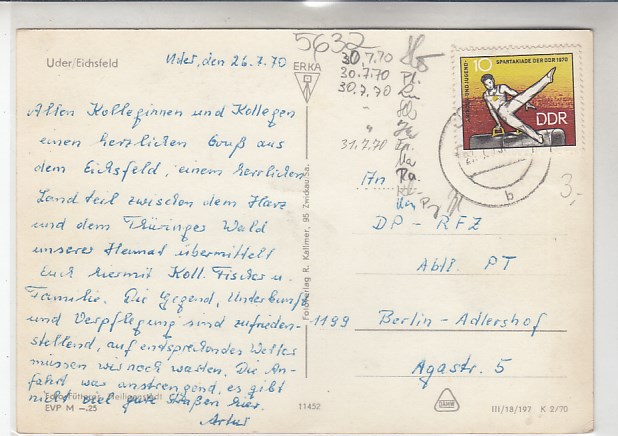 Uder/Eichsfeld
Uder, den 26.7.70
Allen Kolleginnen und Kollegen
einen herzlichen Gruß aus
dem Eichsfeld, einem herrlichen
Landteil zwischen dem Harz
und dem Thüringer Wald
unserer Heimat übermittelt
Euch hiermit Koll. Fischer u.
Familie. Die Gegend, Unterkunft
und Verpflegung sind zufrieden-
stellend, auf entsprechendes Wetter
müssen wir noch warten. Die An-
fahrt war anstrengend, es gibt
nicht viel gute Straßen hier.
Artur
Heiligenstadt
EVP M –,25
5632
ERKA
30.7.70
30.7.70
30.7.70
"
"
31.7.70
Fotoverlag R. Kallmer, 95 Zwickau/Sa.
11452
10 SPARTAKIADE DER DDR 1970
DDR
b
3,-
An
DP - RFZ
Abtl. PT
1199 Berlin - Adlershof
Agastr. 5
III/18/197 K 2/70